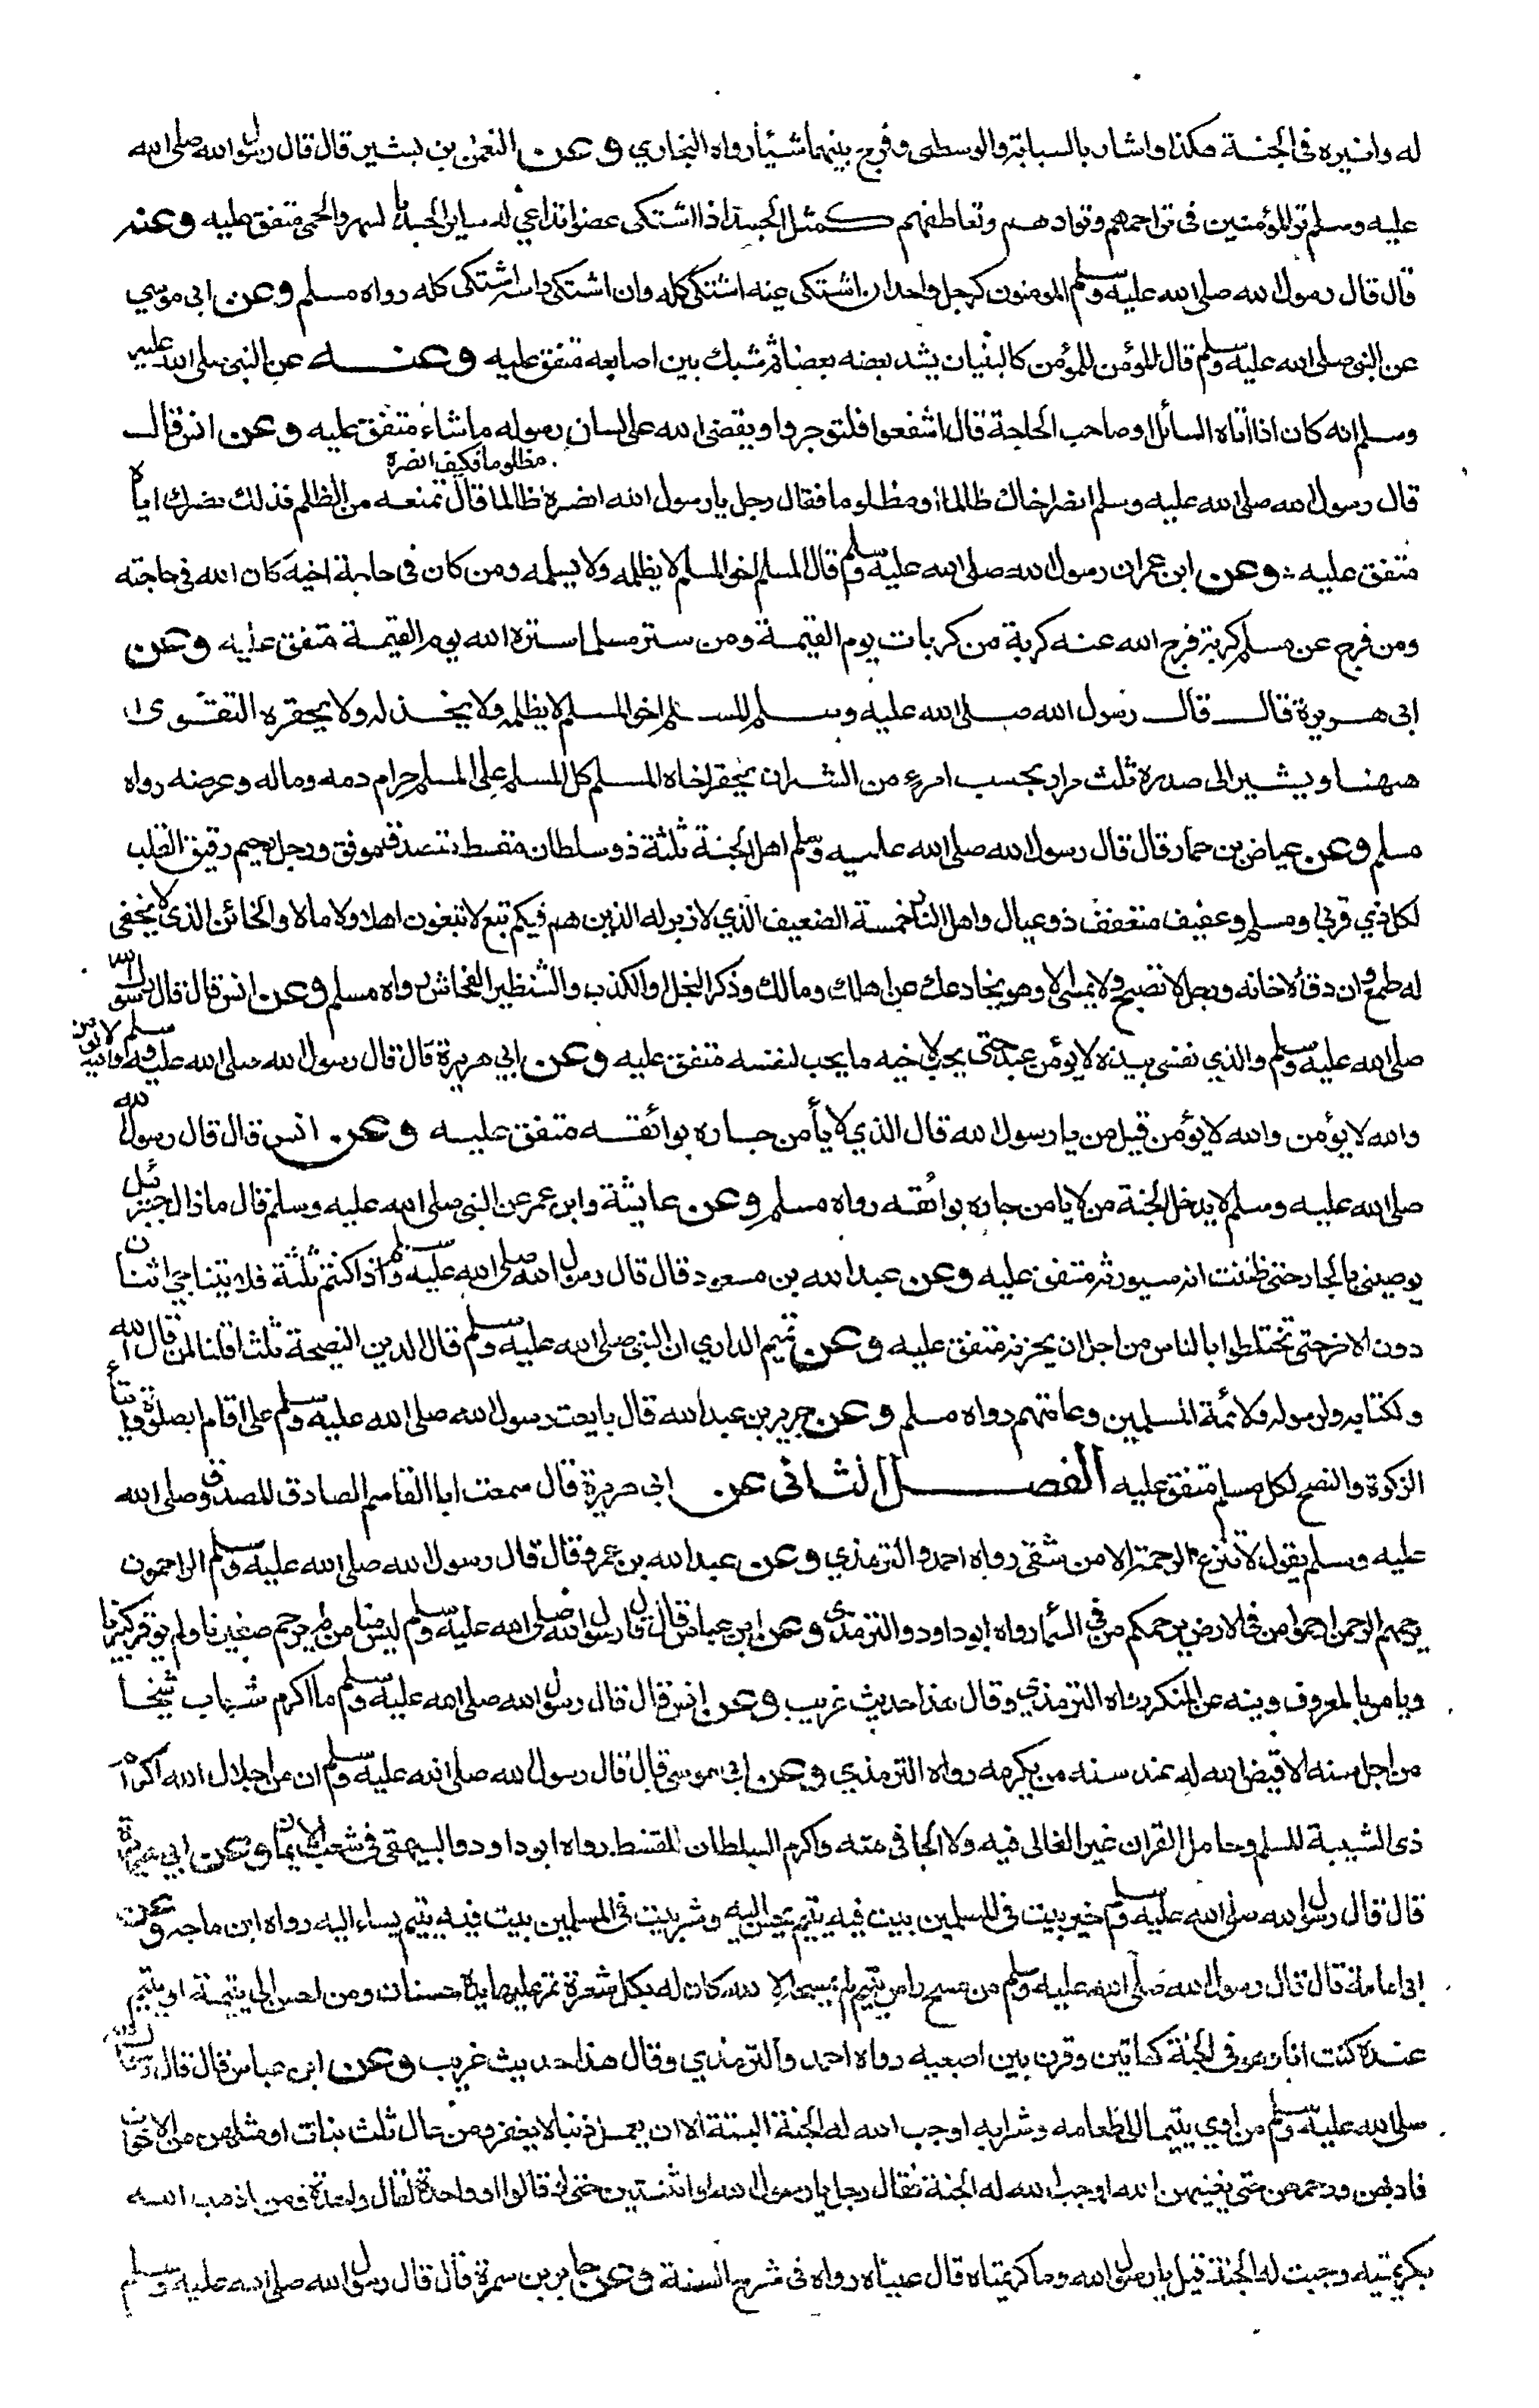 له ولغيره فى الجنــة هكذا واشار بالسبابة والوسطى وفرج بينهما شيئا رواه البخاري وعن النعمن بن بشير قال قال رسول الله صلى الله
عليه وسلم ترى المؤمنين فى تراحمهم وتوادهم وتعاطفهم كمثل الجسد اذا اشتكى عضوا تداعي له ساير الجسد بالسهر والحمى متفق عليه وعنه
قال قال رسول الله صلى الله عليه وسلم المومنون كرجل واحد ان اشتكى عينه اشتكى كله وان اشتكى راسه اشتكى كله رواه مسلم وعن ابى موسي
عن النبي صلى الله عليه وسلم قال المؤمن للمؤمن كالبنيان يشد بعضه بعضا ثم شبك بين اصابعه متفق عليه وعنه عن النبي صلى الله عليه
وسلم انه كان اذا اتاه السائل او صاحب الحاجة قال اشفعوا فلتوجروا ويقضى الله على لسان رسوله ما شاء متفق عليه وعن انس قال
قال رسول الله صلى الله عليه وسلم انصر اخاك ظالما او مظلوما فقال رجل يا رسول الله انصره مظلوما فكيف انصره ظالما قال تمنعه من الظلم فذلك نصرك اياه
متفق عليه وعن ابن عمر ان رسول الله صلى الله عليه وسلم قال المسلم اخو المسلم لا يظلمه ولا يسلمه ومن كان فى حاجة اخيه كان الله فى حاجته
ومن فرج عن مسلم كربة فرج الله عنه كربة من كربات يوم القيمة ومن ستر مسلما ستره الله يوم القيمة متفق عليه وعن
ابى هريرة قال قال رسول الله صلى الله عليه وسلم المسلم اخو المسلم لا يظلمه ولا يخذله ولا يحقره التقوى
ههنا ويشير الى صدره ثلث مرار بحسب امرء من الشر ان يحقر اخاه المسلم كل المسلم على المسلم حرام دمه وماله وعرضه رواه
مسلم وعن عياض بن حمار قال قال رسول الله صلى الله عليه وسلم اهل الجنة ثلثة ذو سلطان مقسط متصدق موفق ورجل رحيم رقيق القلب
لكل ذي قربى ومسلم وعفيف متعفف ذو عيال واهل النار خمسة الضعيف الذي لا زبر له الذين هم فيكم تبع لا تبغون اهلا ولا مالا والخائن الذى لا يخفى
له طمع وان دق الا خانه ورجل لا تصبح ولا يمسى الا وهو يخادعك عن اهلك ومالك وذكر البخل او الكذب والشنظير الفحاش رواه مسلم وعن انس قال قال رسول الله
صلى الله عليه وسلم والذي نفسي بيده لا يؤمن عبد حتى يحب لاخيه ما يحب لنفسه متفق عليه وعن ابي هريرة قال قال رسول الله صلى الله عليه وسلم والله لا يومن
والله لا يؤمن والله لا يؤمن قيل من يا رسول الله قال الذي لا يأمن جاره بوائقه متفق عليه وعن انس قال قال رسول الله
صلى الله عليه وسلم لا يدخل الجنة من لا يامن جاره بوائقه رواه مسلم وعن عايشة وابن عمر عن النبي صلى الله عليه وسلم قال ما زال جبرئيل
يوصيني بالجار حتى ظننت انه سيورثه متفق عليه وعن عبد الله بن مسعود قال قال رسول الله صلى الله عليه وسلم اذا كنتم ثلثة فلا يتناجى اثنان
دون الاخر حتى تختلطوا بالناس من اجل ان يحزنه متفق عليه وعن تميم الداري ان النبي صلى الله عليه وسلم قال الدين النصيحة ثلثا قلنا لمن قال لله
ولكتابه ولرسوله ولائمة المسلمين وعامتهم رواه مسلم وعن جرير بن عبد الله قال بايعت رسول الله صلى الله عليه وسلم على اقام الصلوة وايتاء
الزكوة والنصح لكل مسلم متفق عليه الفصل الثانى عن ابي هريرة قال سمعت ابا القاسم الصادق المصدوق صلى الله
عليه وسلم يقول لا تنزع الرحمة الا من شقى رواه احمد والترمذي وعن عبد الله بن عمرو قال قال رسول الله صلى الله عليه وسلم الراحمون
يرحمهم الرحمن ارحموا من فى الارض يرحمكم من فى السماء رواه ابو داود والترمذي وعن ابن عباس قال قال رسول الله صلى الله عليه وسلم ليس منا من لم يرحم صغيرنا ولم يوقر كبيرنا
ويامر بالمعروف وينه عن المنكر رواه الترمذي وقال هذا حديث غريب وعن انس قال قال رسول الله صلى الله عليه وسلم ما اكرم شاب شيخا
من اجل سنه الا قيض الله له عند سنه من يكرمه رواه الترمذي وعن ابى موسى قال قال رسول الله صلى الله عليه وسلم ان من اجلال الله اكرام
ذى الشيبة المسلم وحامل القران غير الغالى فيه ولا الجافى عنه واكرم السلطان المقسط رواه ابو داود والبيهقى فى شعب الايمان وعن ابي هريرة
قال قال رسول الله صلى الله عليه وسلم خير بيت فى المسلمين بيت فيه يتيم يحسن اليه وشر بيت فى المسلمين بيت فيه يتيم يساء اليه رواه ابن ماجه وعن
ابى امامة قال قال رسول الله صلى الله عليه وسلم من مسح راس يتيم لم يمسحه الا لله كان له بكل شعرة تمر عليها يده حسنات ومن احسن الى يتيمة او يتيم
عنده كنت انا وهو فى الجنة كهاتين وقرن بين اصبعيه رواه احمد والترمذي وقال هذا حديث غريب وعن ابن عباس قال قال رسول الله
صلى الله عليه وسلم من اوي يتيما الى طعامه وشرابه اوجب الله له الجنة البتة الا ان يعمل ذنبا لا يغفر ومن عال ثلث بنات او مثلهن من الاخوات
فادبهن ورحمهن حتى يغنيهن الله اوجب الله له الجنة فقال رجل يا رسول الله او اثنتين حتى لو قالوا او واحدة لقال واحدة ومن اذهب الله
بكريمتيه وجبت له الجنة قيل يا رسول الله وما كريمتاه قال عيناه رواه فى شرح السنة وعن جابر بن سمرة قال قال رسول الله صلى الله عليه وسلم